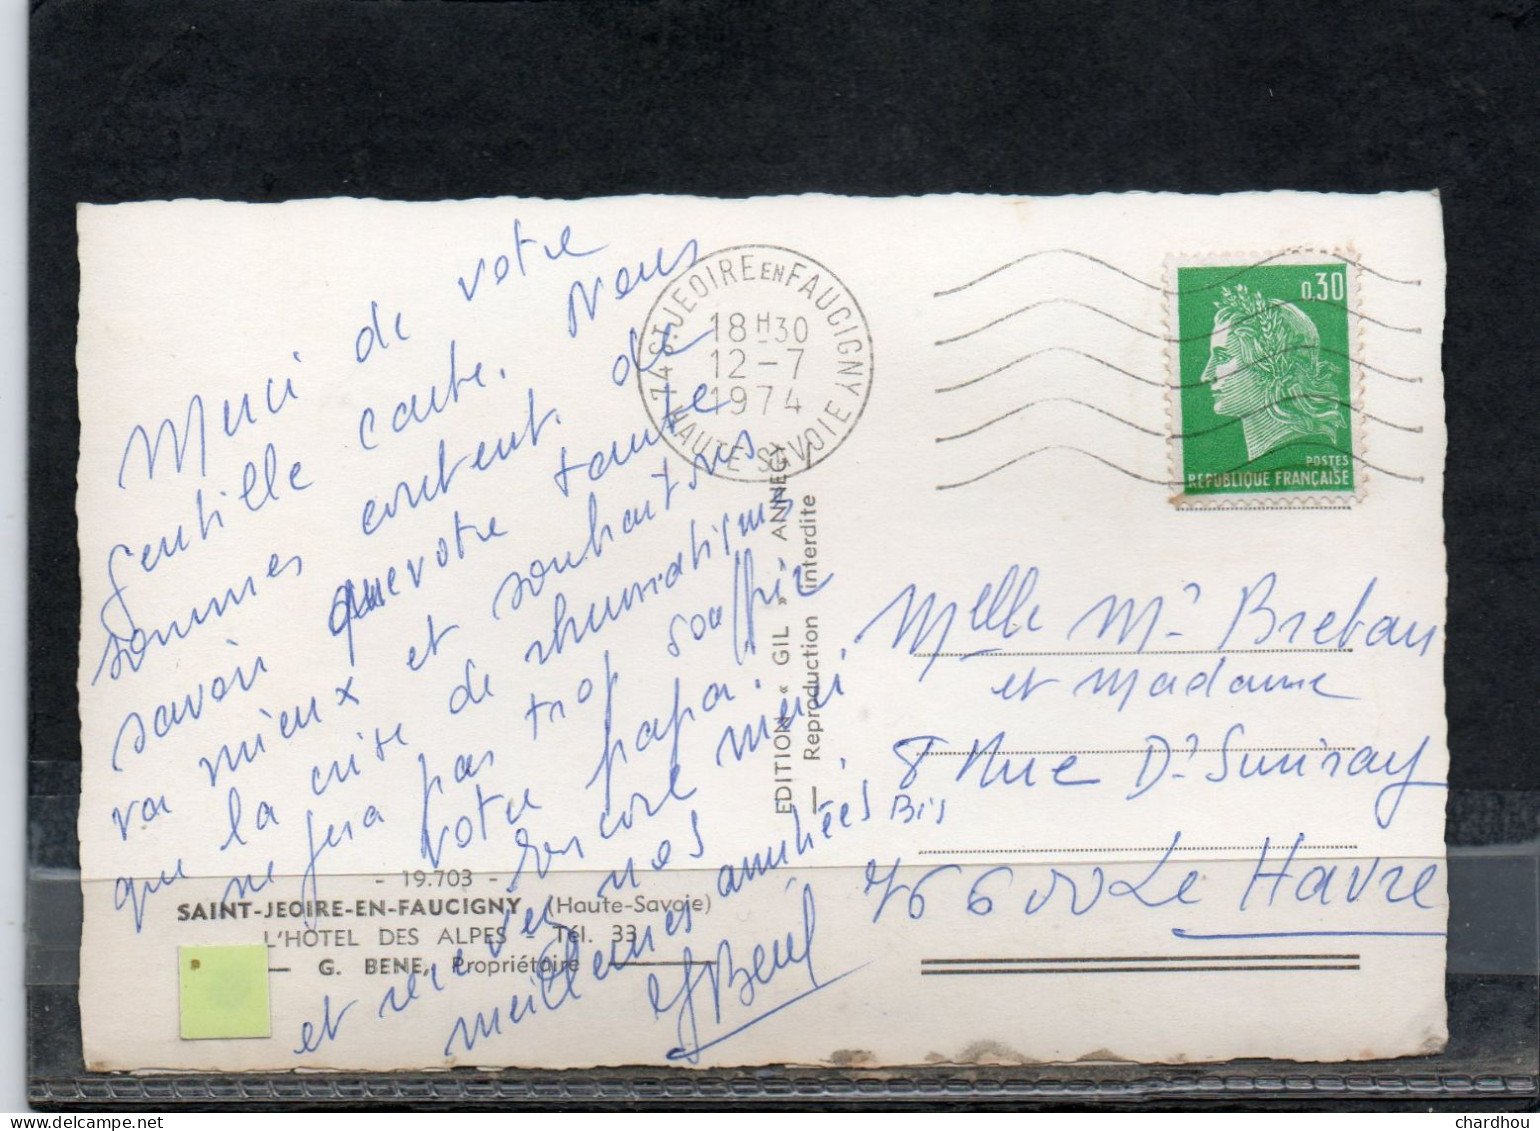 Merci de votre
gentille carte. Nous
sommes content de
savoir que votre tante
va mieux et souhaitons
que la crise de rhumatismes
ne fera pas trop souffrir
votre papa.
Encore merci
et recevez nos
meilleures amitiés
GBené
74 ST.JEOIRE EN FAUCIGNY
18H30
12-7
1974
HAUTE SAVOIE
0,30
POSTES
REPUBLIQUE FRANÇAISE
EDITION « GIL » ANNECY
Reproduction interdite
Melle M. Bretau
et Madame
8 Rue D. Suriray
Bis
76600 Le Havre
- 19.703 -
SAINT-JEOIRE-EN-FAUCIGNY (Haute-Savoie)
L'HOTEL DES ALPES - Tél. 33
G. BENE, Propriétaire
chardhou